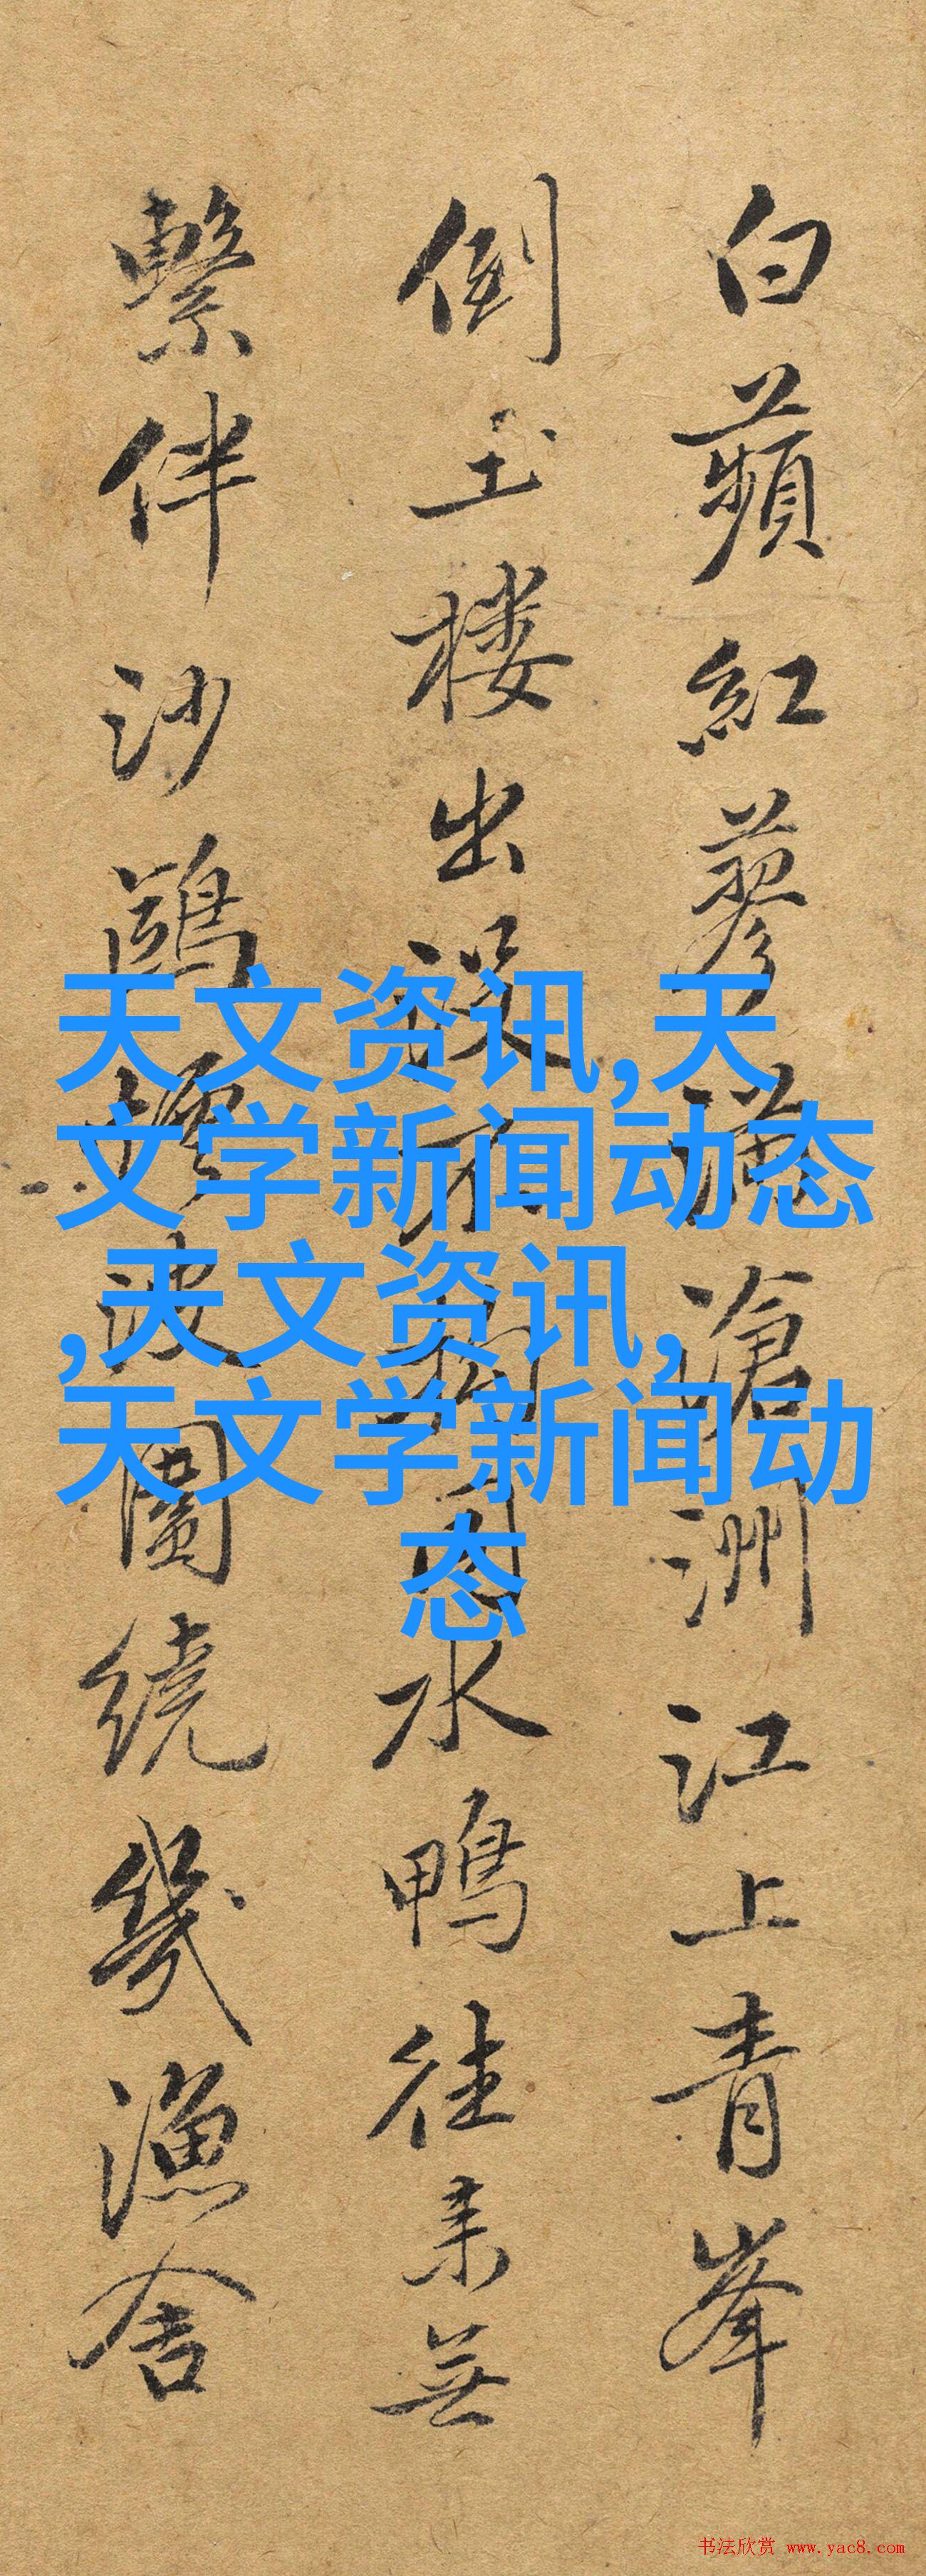 白蘋紅蓼满滄洲江上青峯
倒玉楼出没不拘同水鴨往来無
繫伴沙鷗波圍繞幾漁舍
天文资讯,天
文学新闻动态
,天文资讯,
天文学新闻动
态
书法欣赏 www.yac8.com